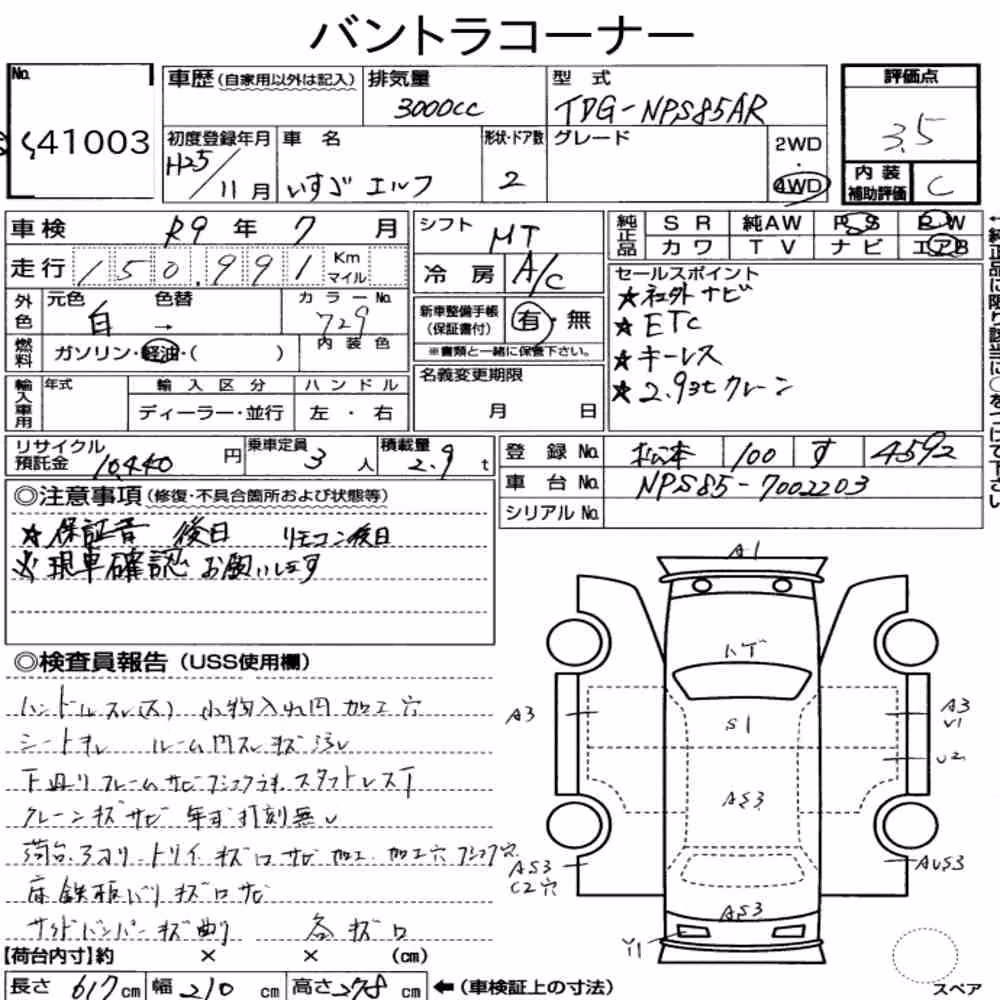 バントラコーナー
No. 41003
車歴(自家用以外は記入) 排気量 3000cc 型式 TDG-NPS85AR 評価点 3.5
初度登録年月 H25/11月 車名 いすゞ エルフ 形状・ドア数 2 グレード 2WD・4WD 内装補助評価 C
車検 R9年7月 シフト MT 純正品 SR 純AW PS PW
走行 150,991 Km マイル 冷房 A/C カワ TV ナビ エアB
←純正品に限り該当に○をつけて下さい
外色 元色 白 → 色替 カラーNo. 729
新車整備手帳(保証書付) 有・無
※書類と一緒に保管下さい。
燃料 ガソリン・軽油・( ) 内装色
セールスポイント
☆社外ナビ
☆ETC
☆キーレス
☆2.93tクレーン
輸入車用 年式 輸入区分 ディーラー・並行 ハンドル 左・右
名義変更期限 月 日
リサイクル預託金 10,440円 乗車定員 3人 積載量 2.9t
登録No. 松本 100 す 4592
車台No. NPS85-7002203
シリアルNo.
◎注意事項(修復・不具合箇所および状態等)
☆保証書 後日 リモコン後日
※現車確認お願いします
◎検査員報告(USS使用欄)
ハンドルスレ(大) 小物入れ内加工穴
シートキレ ルーム内スレキズ汚レ
下廻りフレームサビ スタットレスT
クレーンキズサビ 年式打刻無し
キズロサビ 加工 加工穴
床鉄板バリ キズロサビ
サイドバンパーキズ曲り 各キズロ
【荷台内寸】約 × × (cm)
長さ 617cm 幅 210cm 高さ 278cm ←(車検証上の寸法)
A1
ハゲ
A3
S1
A3
V1
U2
AS3
AS3
C2穴
AUS3
AS3
Y1
スペア